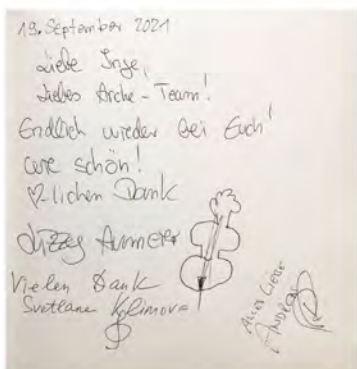 19. September 2021
Liebe Inge,
Liebes Arche-Team!
Endlich wieder bei Euch!
wie schön!
♡lichen Dank
Lizzy Aumeier
Vielen Dank
Svetlana Klimova
Alles Liebe
Andreas